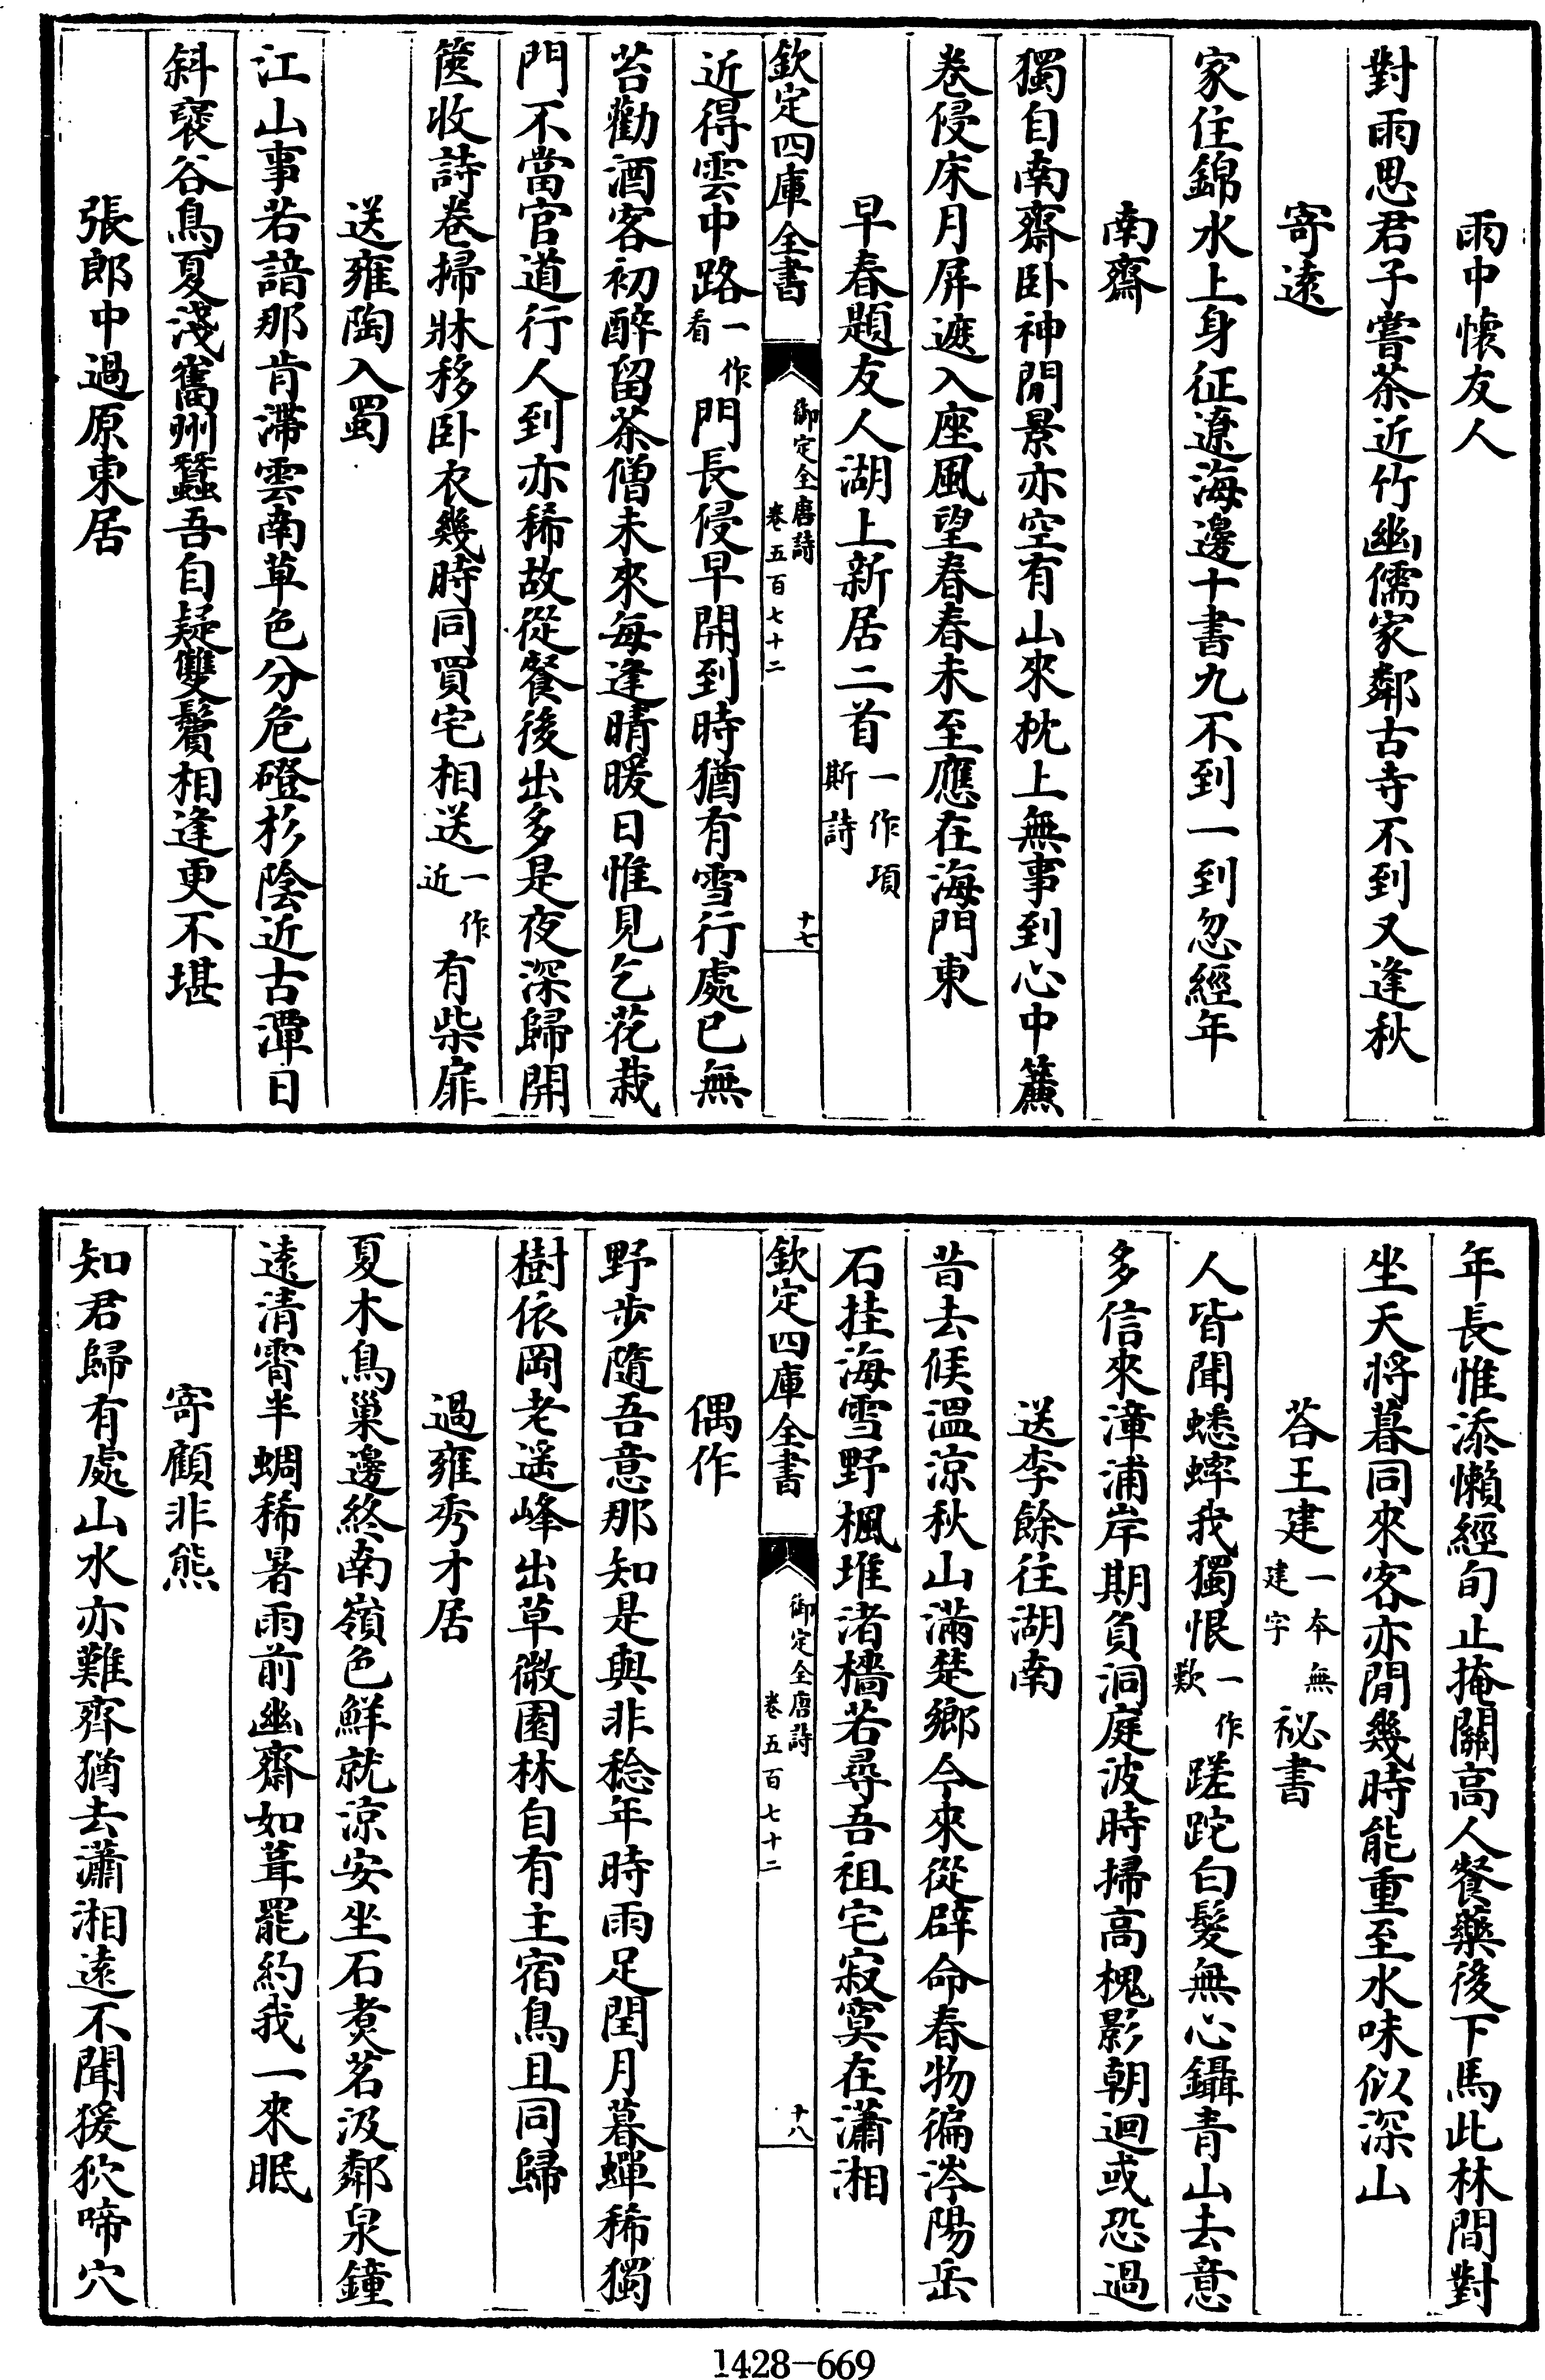 雨中懐友人
對雨思君子嘗茶近竹幽儒家鄰古寺不到又逢秋
寄遠
家住錦水上身征遼海邊十書九不到一到忽經年
南齋
獨自南齋卧神閒景亦空有山來枕上無事到心中簾
卷侵床月屏遮入座風望春春未至應在海門東
早春題友人湖上新居二首一作項斯詩
欽定四庫全書
御定全唐詩
卷五百七十二
十七
近得雲中路一作看門長侵早開到時猶有雪行處已無
苔勸酒客初醉留茶僧未來每逢晴暖日惟見乞花栽
門不當官道行人到亦稀故從餐後出多是夜深歸開
篋收詩卷掃牀移卧衣幾時同買宅相送一作近有柴扉
送雍陶入蜀
江山事若諳那肯滯雲南草色分危磴杉陰近古潭日
斜襃谷鳥夏淺嶲州蠶吾自疑雙鬢相逢更不堪
張郎中過原東居
年長惟添懶經旬止掩關高人餐藥後下馬此林間對
坐天將暮同來客亦閒幾時能重至水味似深山
荅王建一本無建字祕書
人皆聞蟋蟀我獨恨一作歎蹉跎白髮無心鑷青山去意
多信來漳浦岸期負洞庭波時掃高槐影朝迴或恐過
送李餘往湖南
昔去候溫涼秋山滿楚鄉今來從辟命春物徧涔陽岳
石挂海雪野楓堆渚檣若尋吾祖宅寂寞在瀟湘
欽定四庫全書
御定全唐詩
卷五百七十二
十八
偶作
野步隨吾意那知是與非稔年時雨足閏月暮蟬稀獨
樹依岡老遥峰出草微園林自有主宿鳥且同歸
過雍秀才居
夏木鳥巢邊終南嶺色鮮就涼安坐石煮茗汲鄰泉鐘
遠清霄半蜩稀暑雨前幽齋如葺罷約我一來眠
寄顧非熊
知君歸有處山水亦難齊猶去瀟湘遠不聞猨狖啼穴
1428-669